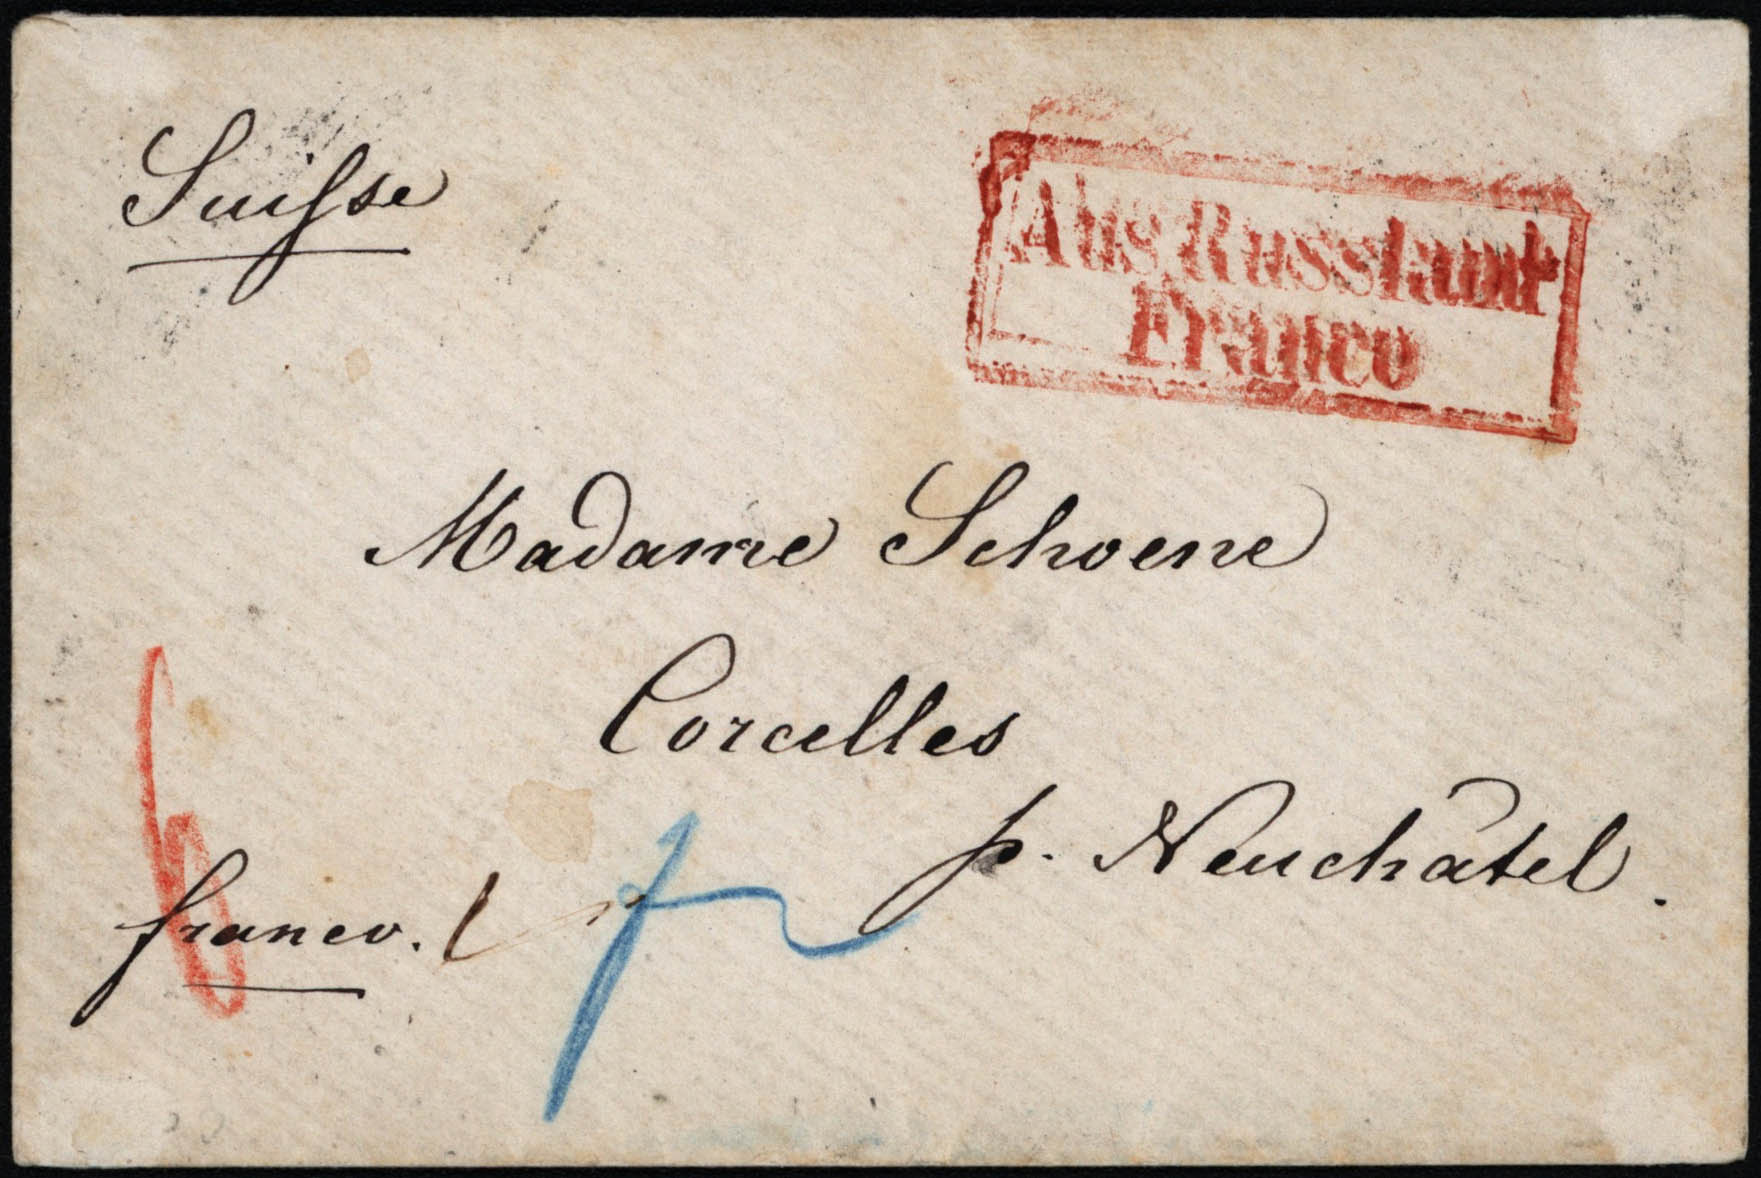 Suisse
Aus Russland
Franco
Madame Schoene
Corcelles
p. Neuchâtel.
franco.